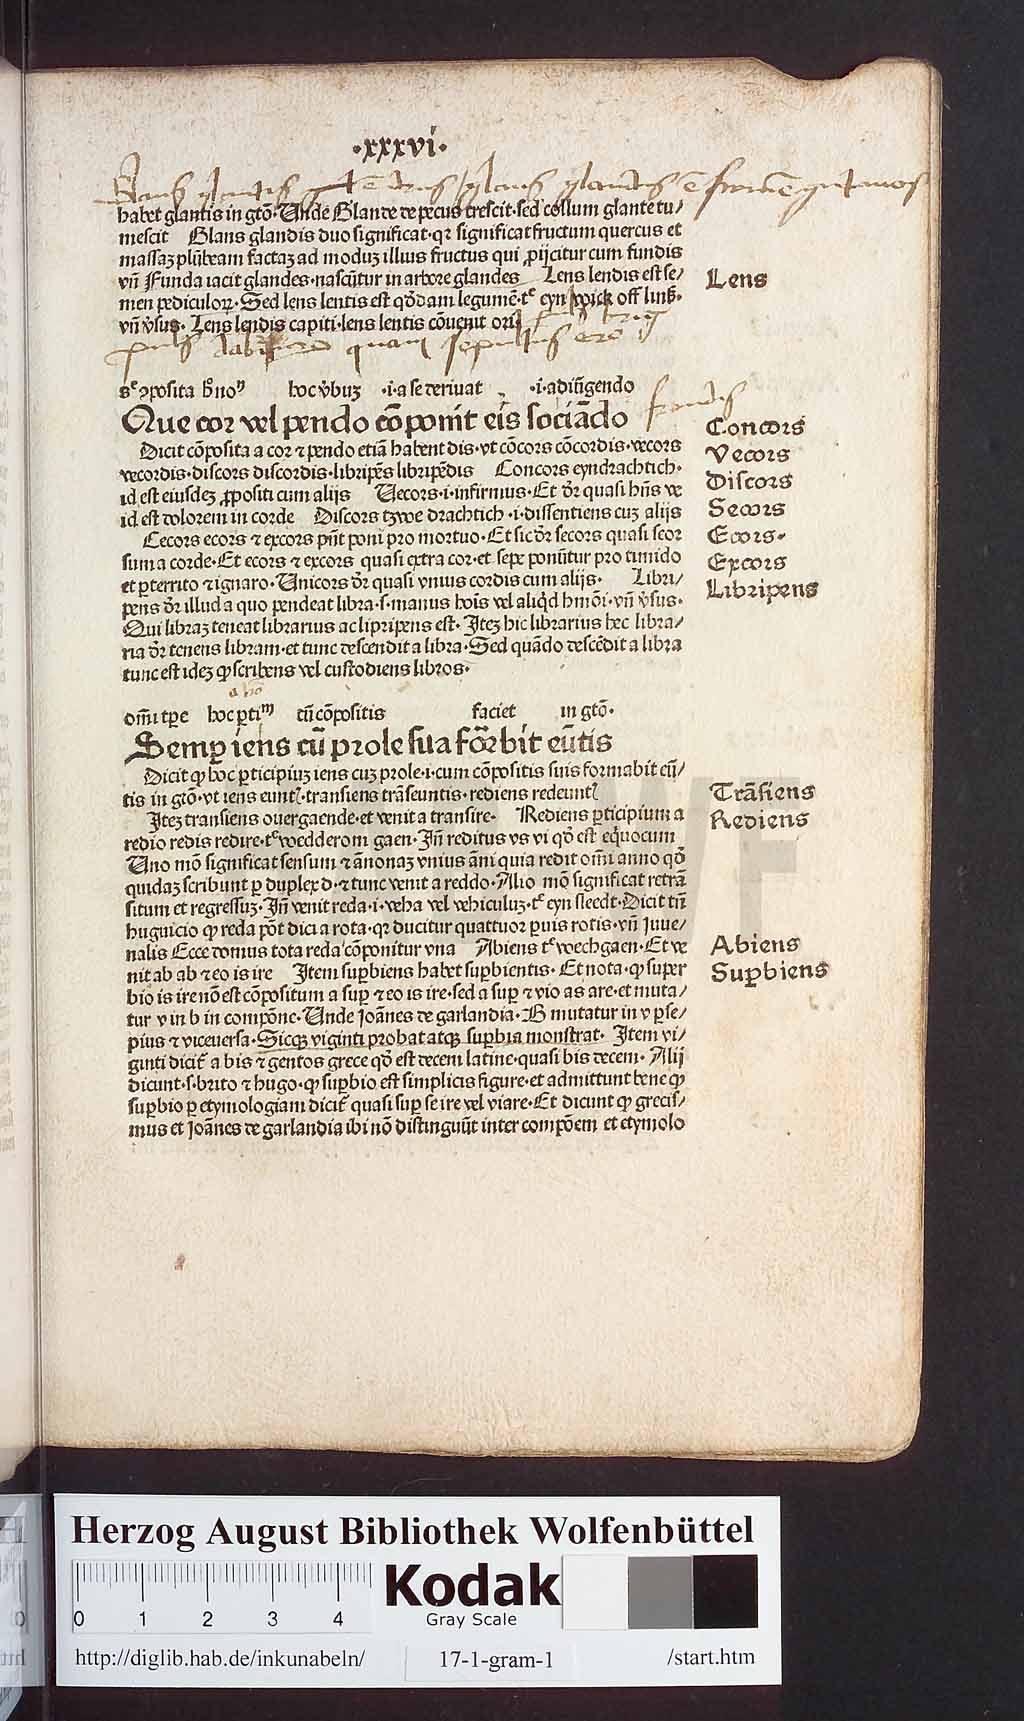 ·xxxvi·
habet glantis in gtō· Unde Glande de pecus crescit· sed collum glante tu/
mescit Glans glandis duo significat· qꝛ significat fructum quercus et
massaꝫ plūbeam factaꝫ ad moduꝫ illius fructus qui ꝓijcitur cum fundis
vñ Funda iacit glandes· nascūtur in arbore glandes Lens lendis est se/
Lens
men pediculoꝝ· Sed lens lentis est qōdam legumē· tᵉ eyn off linß·
vñ ṽsus· Lens lendis capiti· lens lentis cōvenit ori
puls quam sepultus ero
sᵉ ꝯposita hoc ṽbuꝫ ·i· a se derivat ·i· adiūgendo
Que cor vel pendo cōponit eis sociādo
Concors
Dicit cōposita a cor ⁊ pendo etiā habent dis· vt cōcors cōcordis· vecors
Vecors
vecordis· discors discordis· libripēs libripēdis Concors eyndrachtich·
Discors
id est eiusdeꝫ ꝓpositi cum alijs Vecors ·i· infirmus· Et dr̄ quasi hñs ve
Secors
id est dolorem in corde Discors tzwe drachtich ·i· dissentiens cuꝫ alijs
Ecors·
Cecors ecors ⁊ excors pñt poni pro mortuo· Et sic dr̄ secors quasi seor
sum a corde· Et ecors ⁊ excors quasi extra cor· et sepe ponūtur pro timido
Excors
et ꝑterrito ⁊ ignaro· Unicors dr̄ quasi vnius cordis cum alijs· Libri/
Libripens
pens dr̄ illud a quo pendeat libra ·s· manus hoīs vel aliqd hmōi· vñ ṽsus·
Qui libraꝫ teneat librarius ac lipripens est· Iteꝫ hic librarius hec libra/
ria dr̄ tenens libram· et tunc descendit a libra· Sed quādo descēdit a libra
tunc est ideꝫ ꝙ scribens vel custodiens libros·
om̄i tꝑe hoc ꝑtiᵐ cū cōpositis faciet in gtō·
Semꝑ iens cū prole sua fōrbit eūtis
Dicit ꝙ hoc ꝑticipiuꝫ iens cuꝫ prole ·i· cum cōpositis suis formabit eū/
tis in gtō· vt iens eunt⁊· transiens trāseuntis· rediens redeunt⁊
Trāsiens
Iteꝫ transiens overgaende· et venit a transire· Rediens ꝑticipium a
Rediens
redio redis redire· tᵉ wedderom gaen· Iñ reditus vs vi qō est equocum
Uno mō significat sensum ⁊ ānonaꝫ vnius āni quia redit om̄i anno qō
quidaꝫ scribunt ꝑ duplex d· ⁊ tunc venit a reddo· Alio mō significat retrā
situm et regressuꝫ· Iñ venit reda ·i· veha vel vehiculuꝫ· tᵉ eyn sleedt· Dicit tñ
huguicio ꝙ reda pōt dici a rota· qꝛ ducitur quattuor ꝑuis rotis· vñ Iuve/
nalis Ecce domus tota reda cōponitur vna Abiens tᵉ wechgaen· Et ve
Abiens
nit ab ab ⁊ eo is ire Item suꝑbiens habet suꝑbientis· Et nota· ꝙ super
Suꝑbiens
bio is ire nō est cōpositum a suꝑ ⁊ eo is ire· sed a suꝑ ⁊ vio as are· et muta/
tur v in b in compōne· Unde Joānes de garlandia· B mutatur in v ꝑse/
pius ⁊ viceversa· Sicꝙ viginti probat atqꝫ suꝑbia monstrat· Item vi/
ginti dicit̄ a bis ⁊ gentos grece qō est decem latine· quasi bis decem· Alij
dicunt ·s· brito ⁊ hugo· ꝙ suꝑbio est simplicis figure· et admittunt bene ꝙ
suꝑbio ꝑ etymologiam dicit̄ quasi suꝑ se ire vel viare· Et dicunt ꝙ grecis/
mus et Joānes de garlandia ibi nō distinguūt inter compōem et etymolo
Herzog August Bibliothek Wolfenbüttel
0 1 2 3 4
Kodak
Gray Scale
http://diglib.hab.de/inkunabeln/ 17-1-gram-1 /start.htm